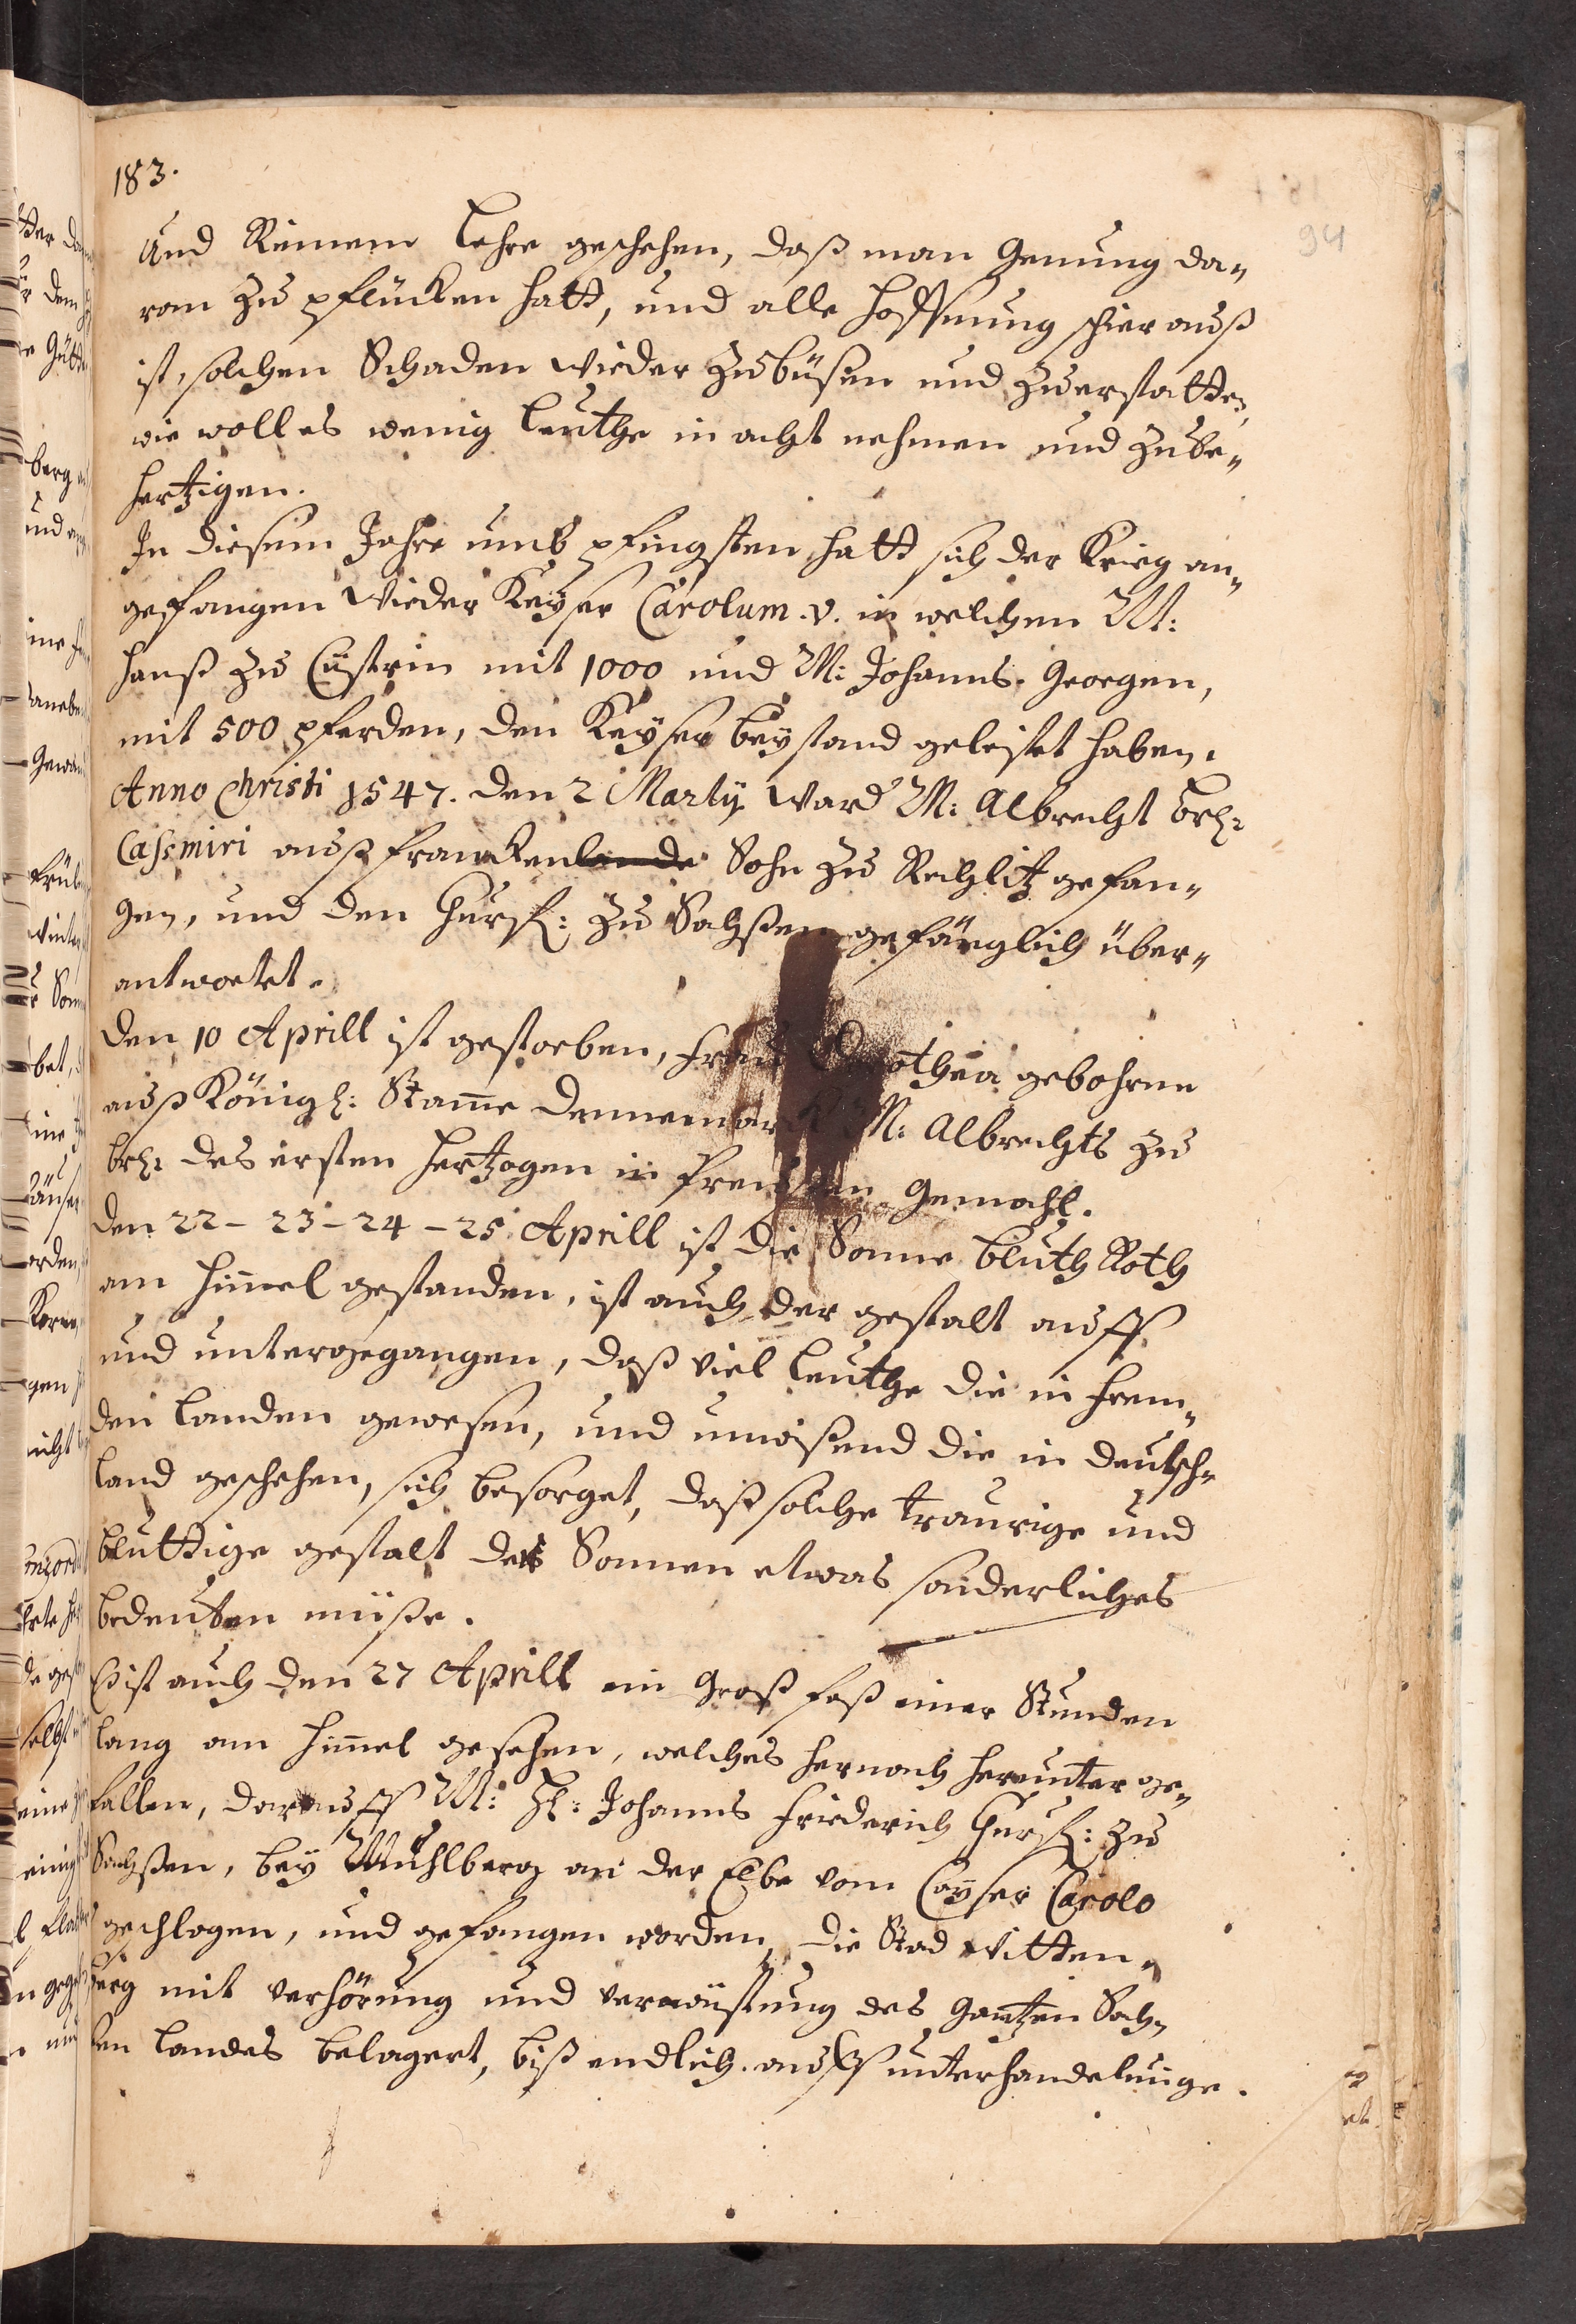 183.
94
Und Reinem Lehre geschehen, daß man Genung da„
ran zu pflücken hatt, und alle Hoffnung schier auß
ist, solchen Schaden wieder zubüsen und zuerstatten,
wie woll es wenig Leuthe in acht nehmen und zu be„
hertzigen.
In diesem Jahre umb pfingsten hatt sich der Krieg an„
gefangen wieder Keyser Carolum. v. in welchen M:
Hanß zu Cüstrin mit 1000 und M: Johanns. Georgen,
mit 500 pferden, den Keyser beystand geleistet haben.
Anno Christi 1547. den 2 Martij ward M: Albrecht brh:
Casmiri auß Franckenlande Sohn zu Rochlitz gefan„
gen, und den Churf: zu Sachßen gefänglich über„
antwortet.
Den 10 Aprill ist gestorben, Frau Dorothea gebohrne
auß Königl: Stame Dennemarck M: Albrechts zu
brh: des ersten Hertzogen in Preussen Gemahl.
Den 22 - 23 - 24 - 25 Aprill ist die Sonne bluth Roth
am Himel gestanden, ist auch der gestalt auff
und untergegangen, daß viel Leuthe die in Frem„
den Landen gewesen, und unwißend die in Deutsch„
land geschehen, sich besorget, daß solche traurige und
bluttige gestalt der Sonnen etwas sonderliches
bedeuten müße.
Es ist auch den 27 Aprill ein Groß faß einer Stunden
lang am Himel gesehen, welches hernach herunter ge„
fallen, darauff M: H: Johanns Friederich Churf: zu
Sachßen, bey Mühlberg an der Elbe vom Cayser Carolo
geschlagen, und gefangen worden, die Stad Witten„
berg mit verhörung und verwüstung des gantzen Sach„
ßen Landes belagert, biß endlich. auff unterhandelunge.